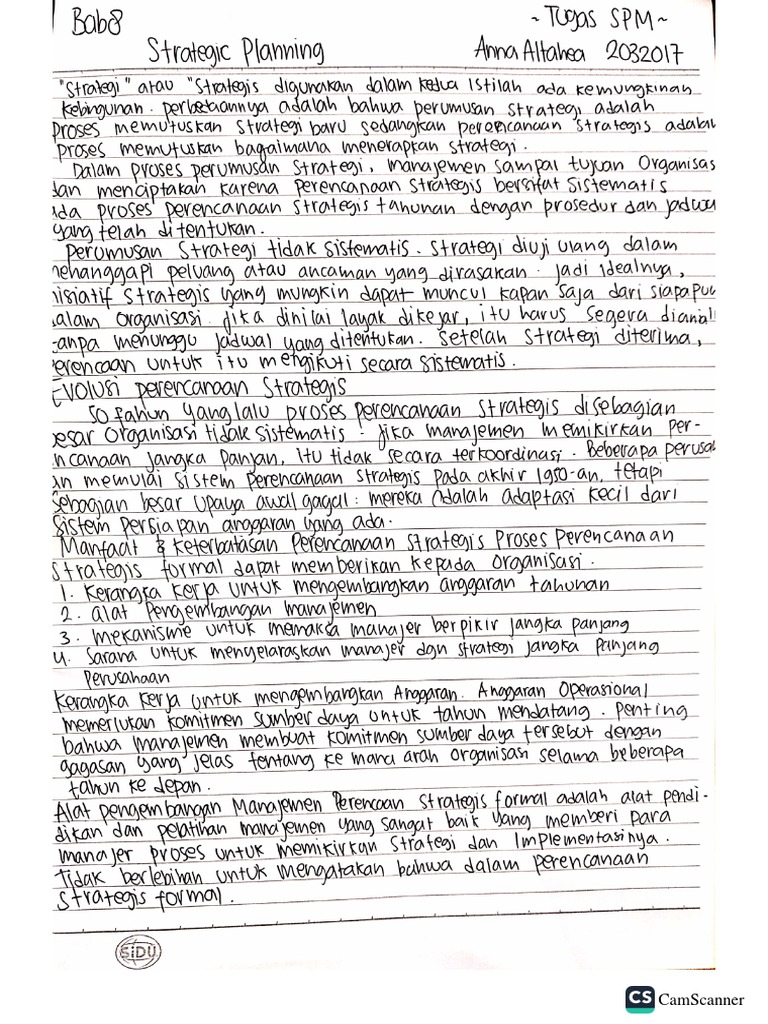 Bab 8
~ Tugas SPM ~
Strategic Planning
Anna Altahea 2032017
"Strategi" atau "Strategis digunakan dalam kedua istilah ada kemungkinan
kebingunan. perbedaannya adalah bahwa perumusan strategi adalah
proses memutuskan strategi baru sedangkan perencanaan strategis adalah
proses memutuskan bagaimana menerapkan strategi.
Dalam proses perumusan strategi, manajemen sampai tujuan organisas
dan menciptakan karena perencanaan strategis bersifat sistematis
ada proses perencanaan strategis tahunan dengan prosedur dan jadwa
yang telah ditentukan.
Perumusan strategi tidak sistematis. Strategi diuji ulang dalam
menanggapi peluang atau ancaman yang dirasakan. Jadi idealnya,
nisiatif strategis yang mungkin dapat muncul kapan saja dari siapapu
alam organisasi. jika dinilai layak dikejar, itu harus segera dianali
tanpa menunggu jadwal yang ditentukan. Setelah strategi diterima,
erencaan untuk itu mengikuti secara sistematis.
Evolusi perencanaan Strategis
50 tahun yang lalu proses perencanaan strategis disebagian
besar organisasi tidak sistematis. jika manajemen memikirkan per-
ncanaan jangka panjan, itu tidak secara terkoordinasi. Beberapa perusa
an memulai sistem perencanaan strategis pada akhir 1950-an, tetapi
sebagian besar upaya awal gagal: mereka adalah adaptasi kecil dari
sistem persiapan anggaran yang ada.
Manfaat & keterbatasan perencanaan strategis proses perencanaan
strategis formal dapat memberikan kepada organisasi.
1. Kerangka kerja untuk mengembangkan anggaran tahunan
2. alat pengembangan manajemen
3. mekanisme untuk memaksa manajer berpikir jangka panjang
4. Sarana untuk menyelaraskan manajer dgn strategi jangka panjang
perusahaan
Kerangka kerja untuk mengembangkan Anggaran. Anggaran Operasional
memerlukan komitmen sumber daya untuk tahun mendatang. penting
bahwa manajemen membuat komitmen sumber daya tersebut dengan
gagasan yang jelas tentang ke mana arah organisasi selama beberapa
tahun ke depan.
Alat pengembangan Manajemen Perencaan strategis formal adalah alat pendi-
dikan dan pelatihan manajemen yang sangat baik yang memberi para
manajer proses untuk memikirkan strategi dan implementasinya.
Tidak berlebihan untuk mengatakan bahwa dalam perencanaan
strategis formal.
SiDU
CS CamScanner